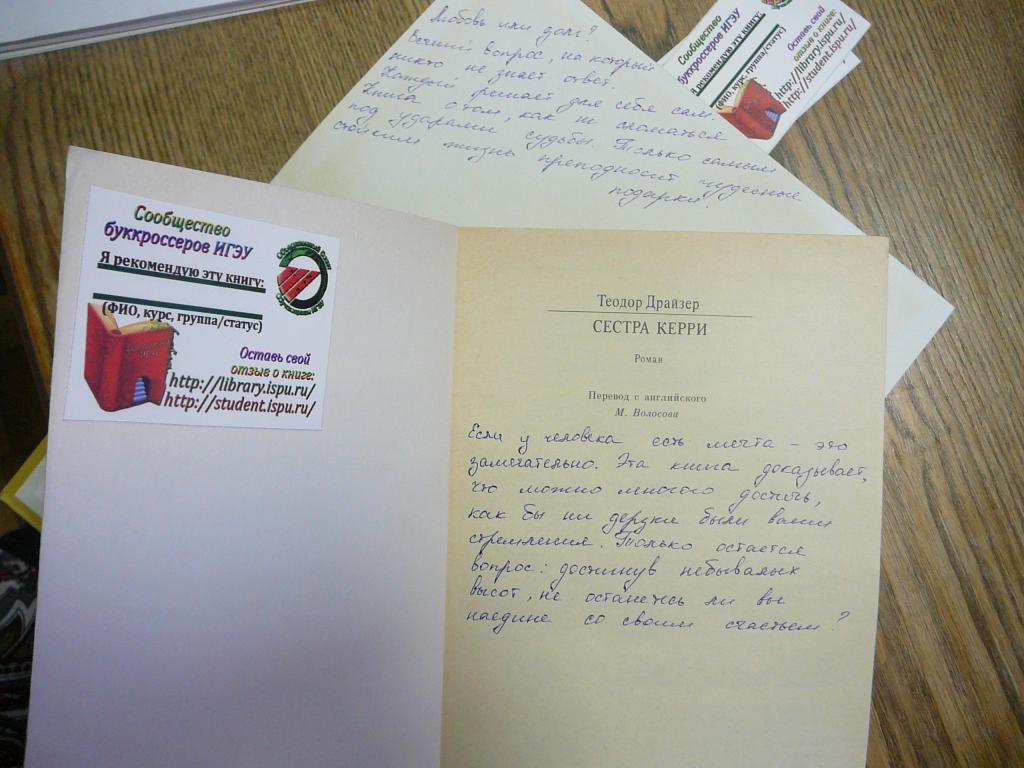 Любовь или долг?
Вечный вопрос, на который
никто не знает ответ.
Каждый решает для себя сам.
Книга о том, как не сломаться
под ударами судьбы. Только самым
стойким жизнь преподносит чудесные
подарки.
Сообщество
буккроссеров ИГЭУ
Я рекомендую эту книгу:
(ФИО, курс, группа/статус)
Оставь свой
отзыв о книге:
http://library.ispu.ru/
http://student.ispu.ru/
Сообщество
буккроссеров ИГЭУ
Я рекомендую эту книгу:
(ФИО, курс, группа/статус)
Оставь свой
отзыв о книге:
http://library.ispu.ru/
http://student.ispu.ru/
Теодор Драйзер
СЕСТРА КЕРРИ
Роман
Перевод с английского
М. Волосова
Если у человека есть мечта – это
замечательно. Эта книга доказывает,
что можно многого достичь,
как бы ни дерзки были ваши
стремления. Только остается
вопрос: достигнув небывалых
высот, не останетесь ли вы
наедине со своим счастьем?